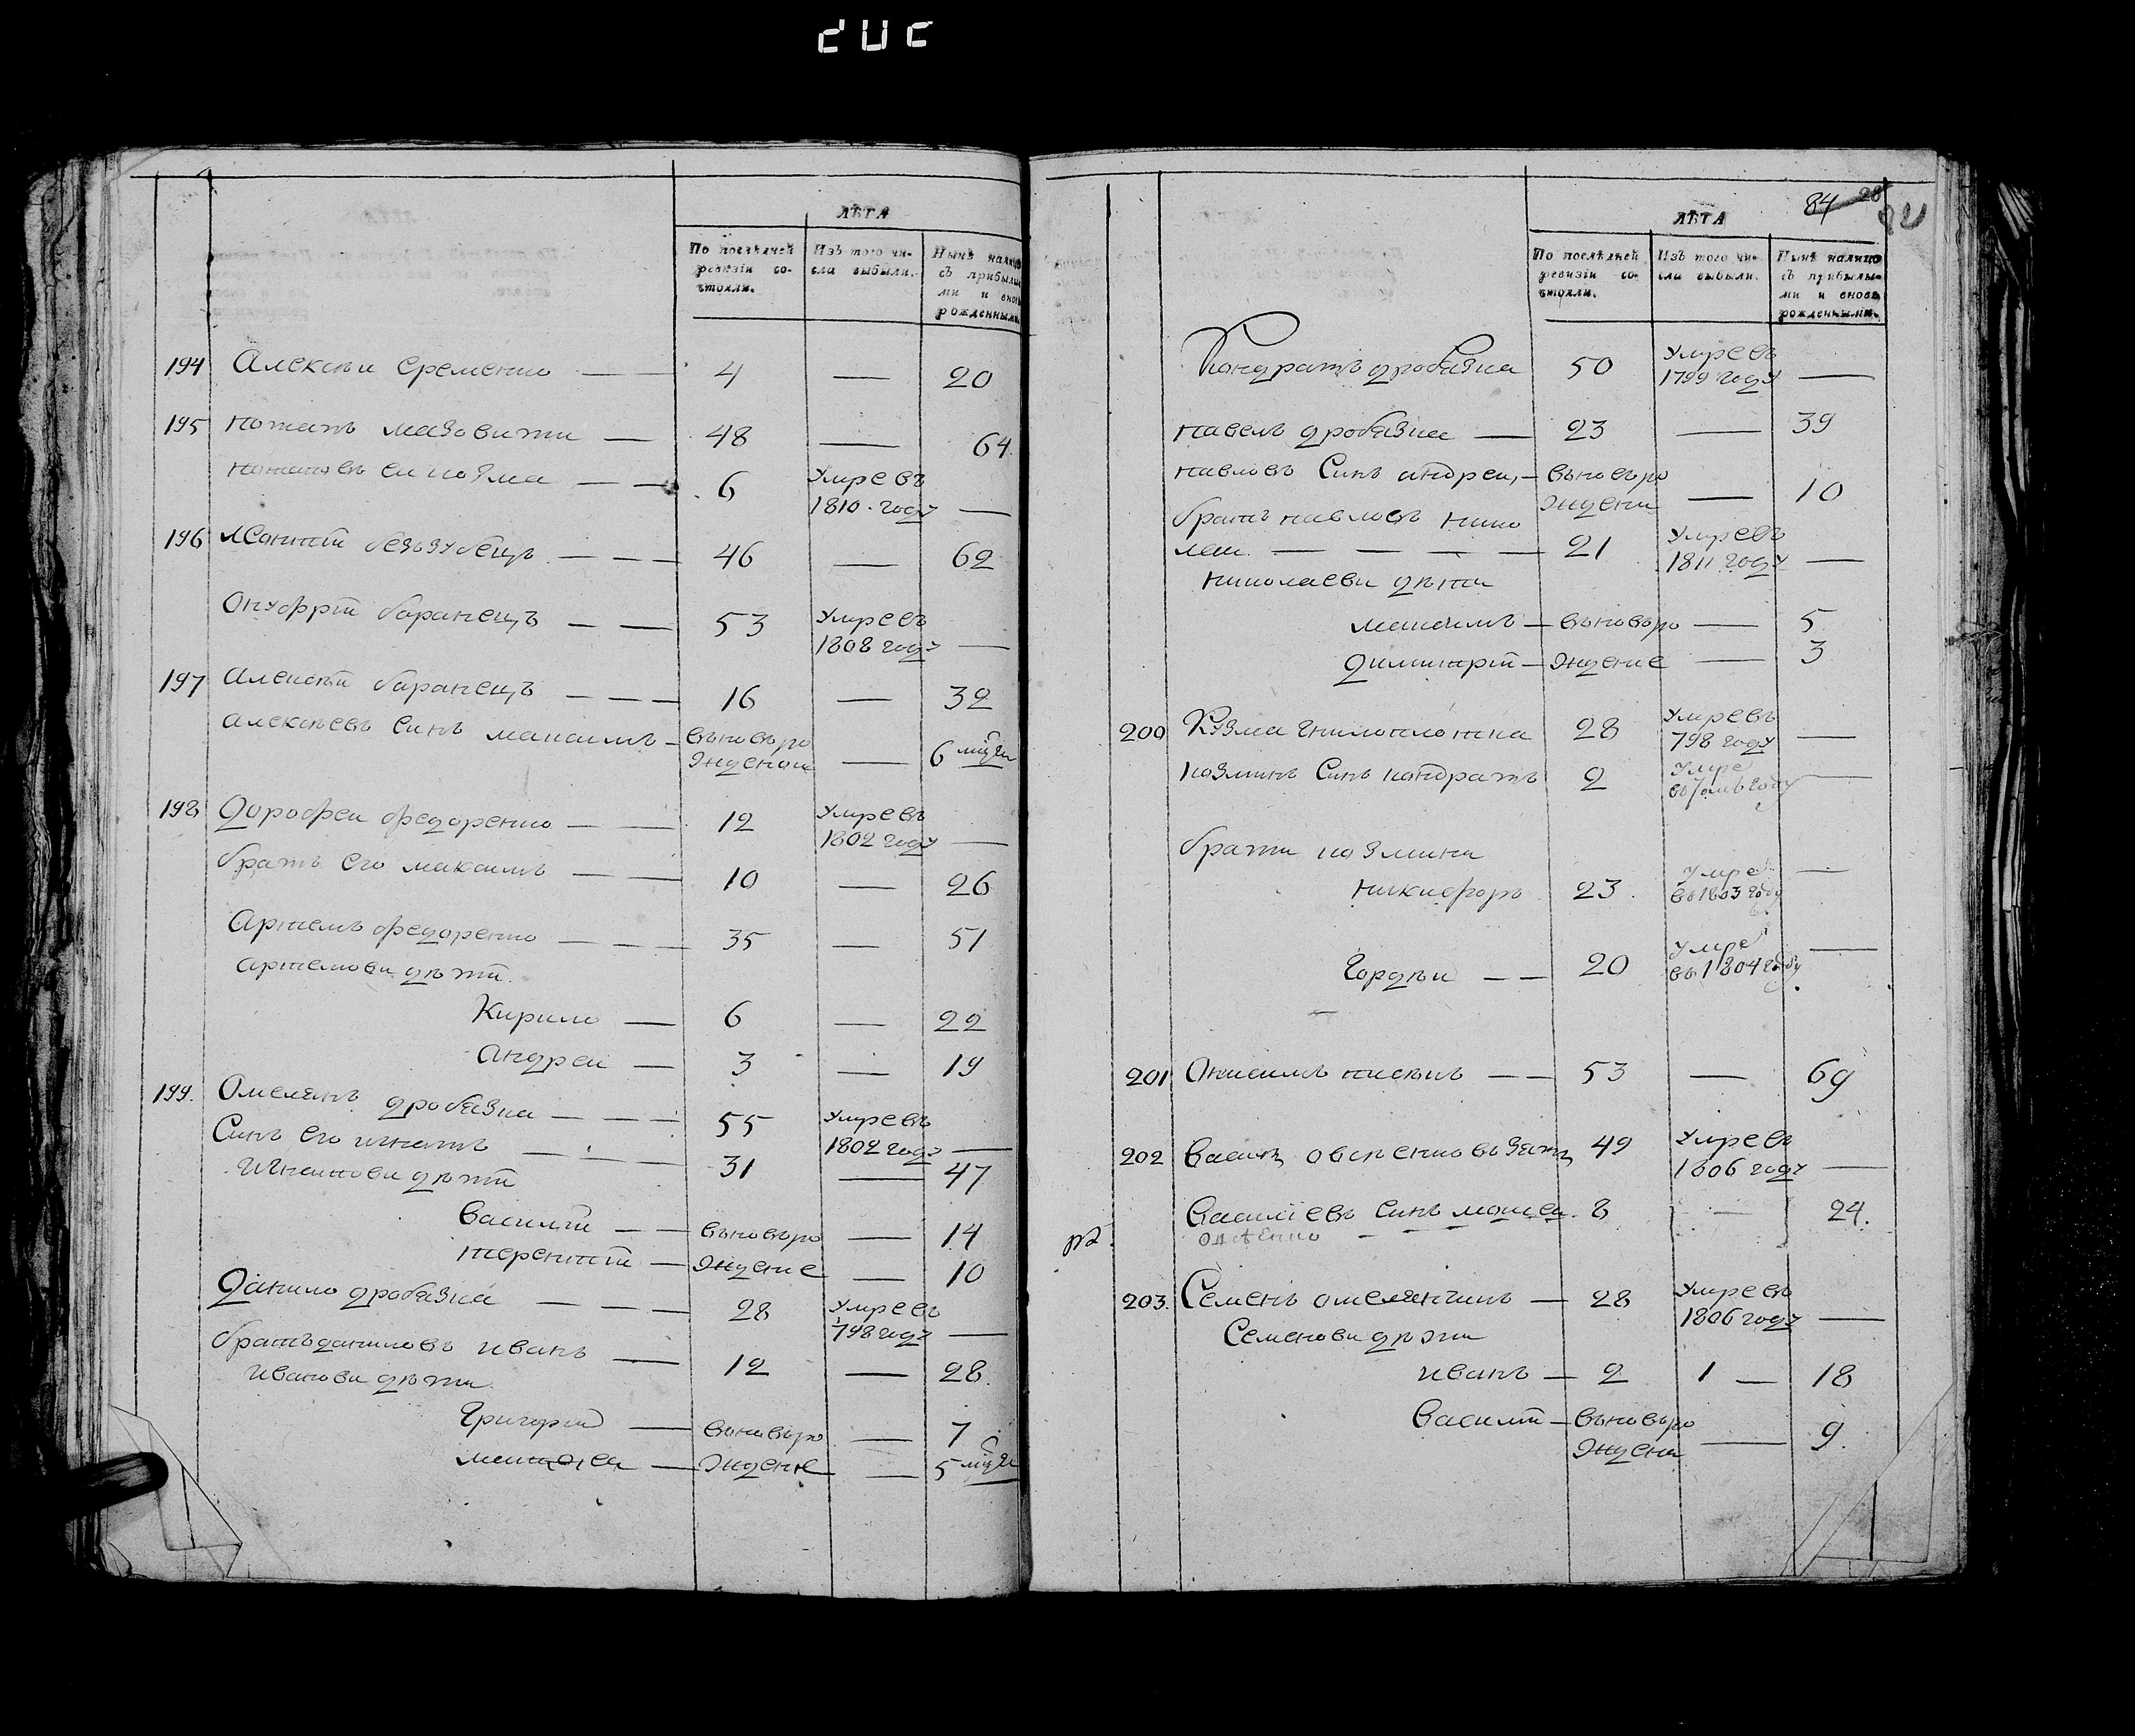 ЛѢТА
По послѣдней ревизіи состояли.
Изъ того числа выбыли.
Нынѣ налицо съ прибылыми и вновь рожденными.
194 Алексѣи еременко — 4 — 20
195 потапъ мазовити — 48 — 64
потаповъ си козма — 6 Умре въ
1810. году —
196 леонтій безъзубецъ — 46 — 62
Онуфрій баранецъ — 53 Умре въ
1808 году —
197 алексѣй баранецъ — 16 — 32
алексѣевъ синъ максимъ — вьновъро
жденой — 6 мцы
198 дорофеи федоренко — 12 Умре въ
1802 году —
братъ его максимъ — 10 — 26
Артемъ федоренко — 35 — 51
артемови дѣти
Кирило — 6 — 22
андреи — 3 — 19
199. Омелянъ дробязка — 55 Умре въ
1802 году —
Синъ его игнатъ — 31 — 47
игнатови дѣти
василій — вьновъро — 14
терентій — ждение — 10
данило дробязка — 28 Умре въ
798 году —
братъ даниловъ иванъ — 12 — 28
ивановы дѣти
Григорій — вьновъро — 7
— ждение — 5 мцы
84
ЛѢТА
По послѣдней ревизіи состояли.
Изъ того числа выбыли.
Нынѣ налицо съ прибылыми и вновь рожденными.
Кондратъ дробязка 50 Умре въ
1799 году —
павелъ дробязка — 23 — 39
павловъ Синъ андреи, — вьновъро
ждени — 10
братъ павловъ нико
лаи — 21 Умре въ
1811 году —
николаеви дѣти
максимъ — вьновъро — 5
димитрій — ждение — 3
200 Кузма гнилоплотка 28 Умре въ
798 году —
козминъ Синъ кондратъ 2 Умре
году —
брати козмини
никифоръ 23. Умре
въ 1803 году —
Гордѣи — 20 Умре
въ 1804 году —
201 Онисимъ писѣнъ — 53 — 69
202 Василь овсѣенковъ зять 49 Умре въ
1806 году —
Василіевъ синъ мойсеи. 8 — 24.
203. Семенъ омелянчикъ — 28 Умре въ
1806 году —
Семенови дѣти
иванъ — 2 1 — 18
Василій — вьновъро
ждени — 9.